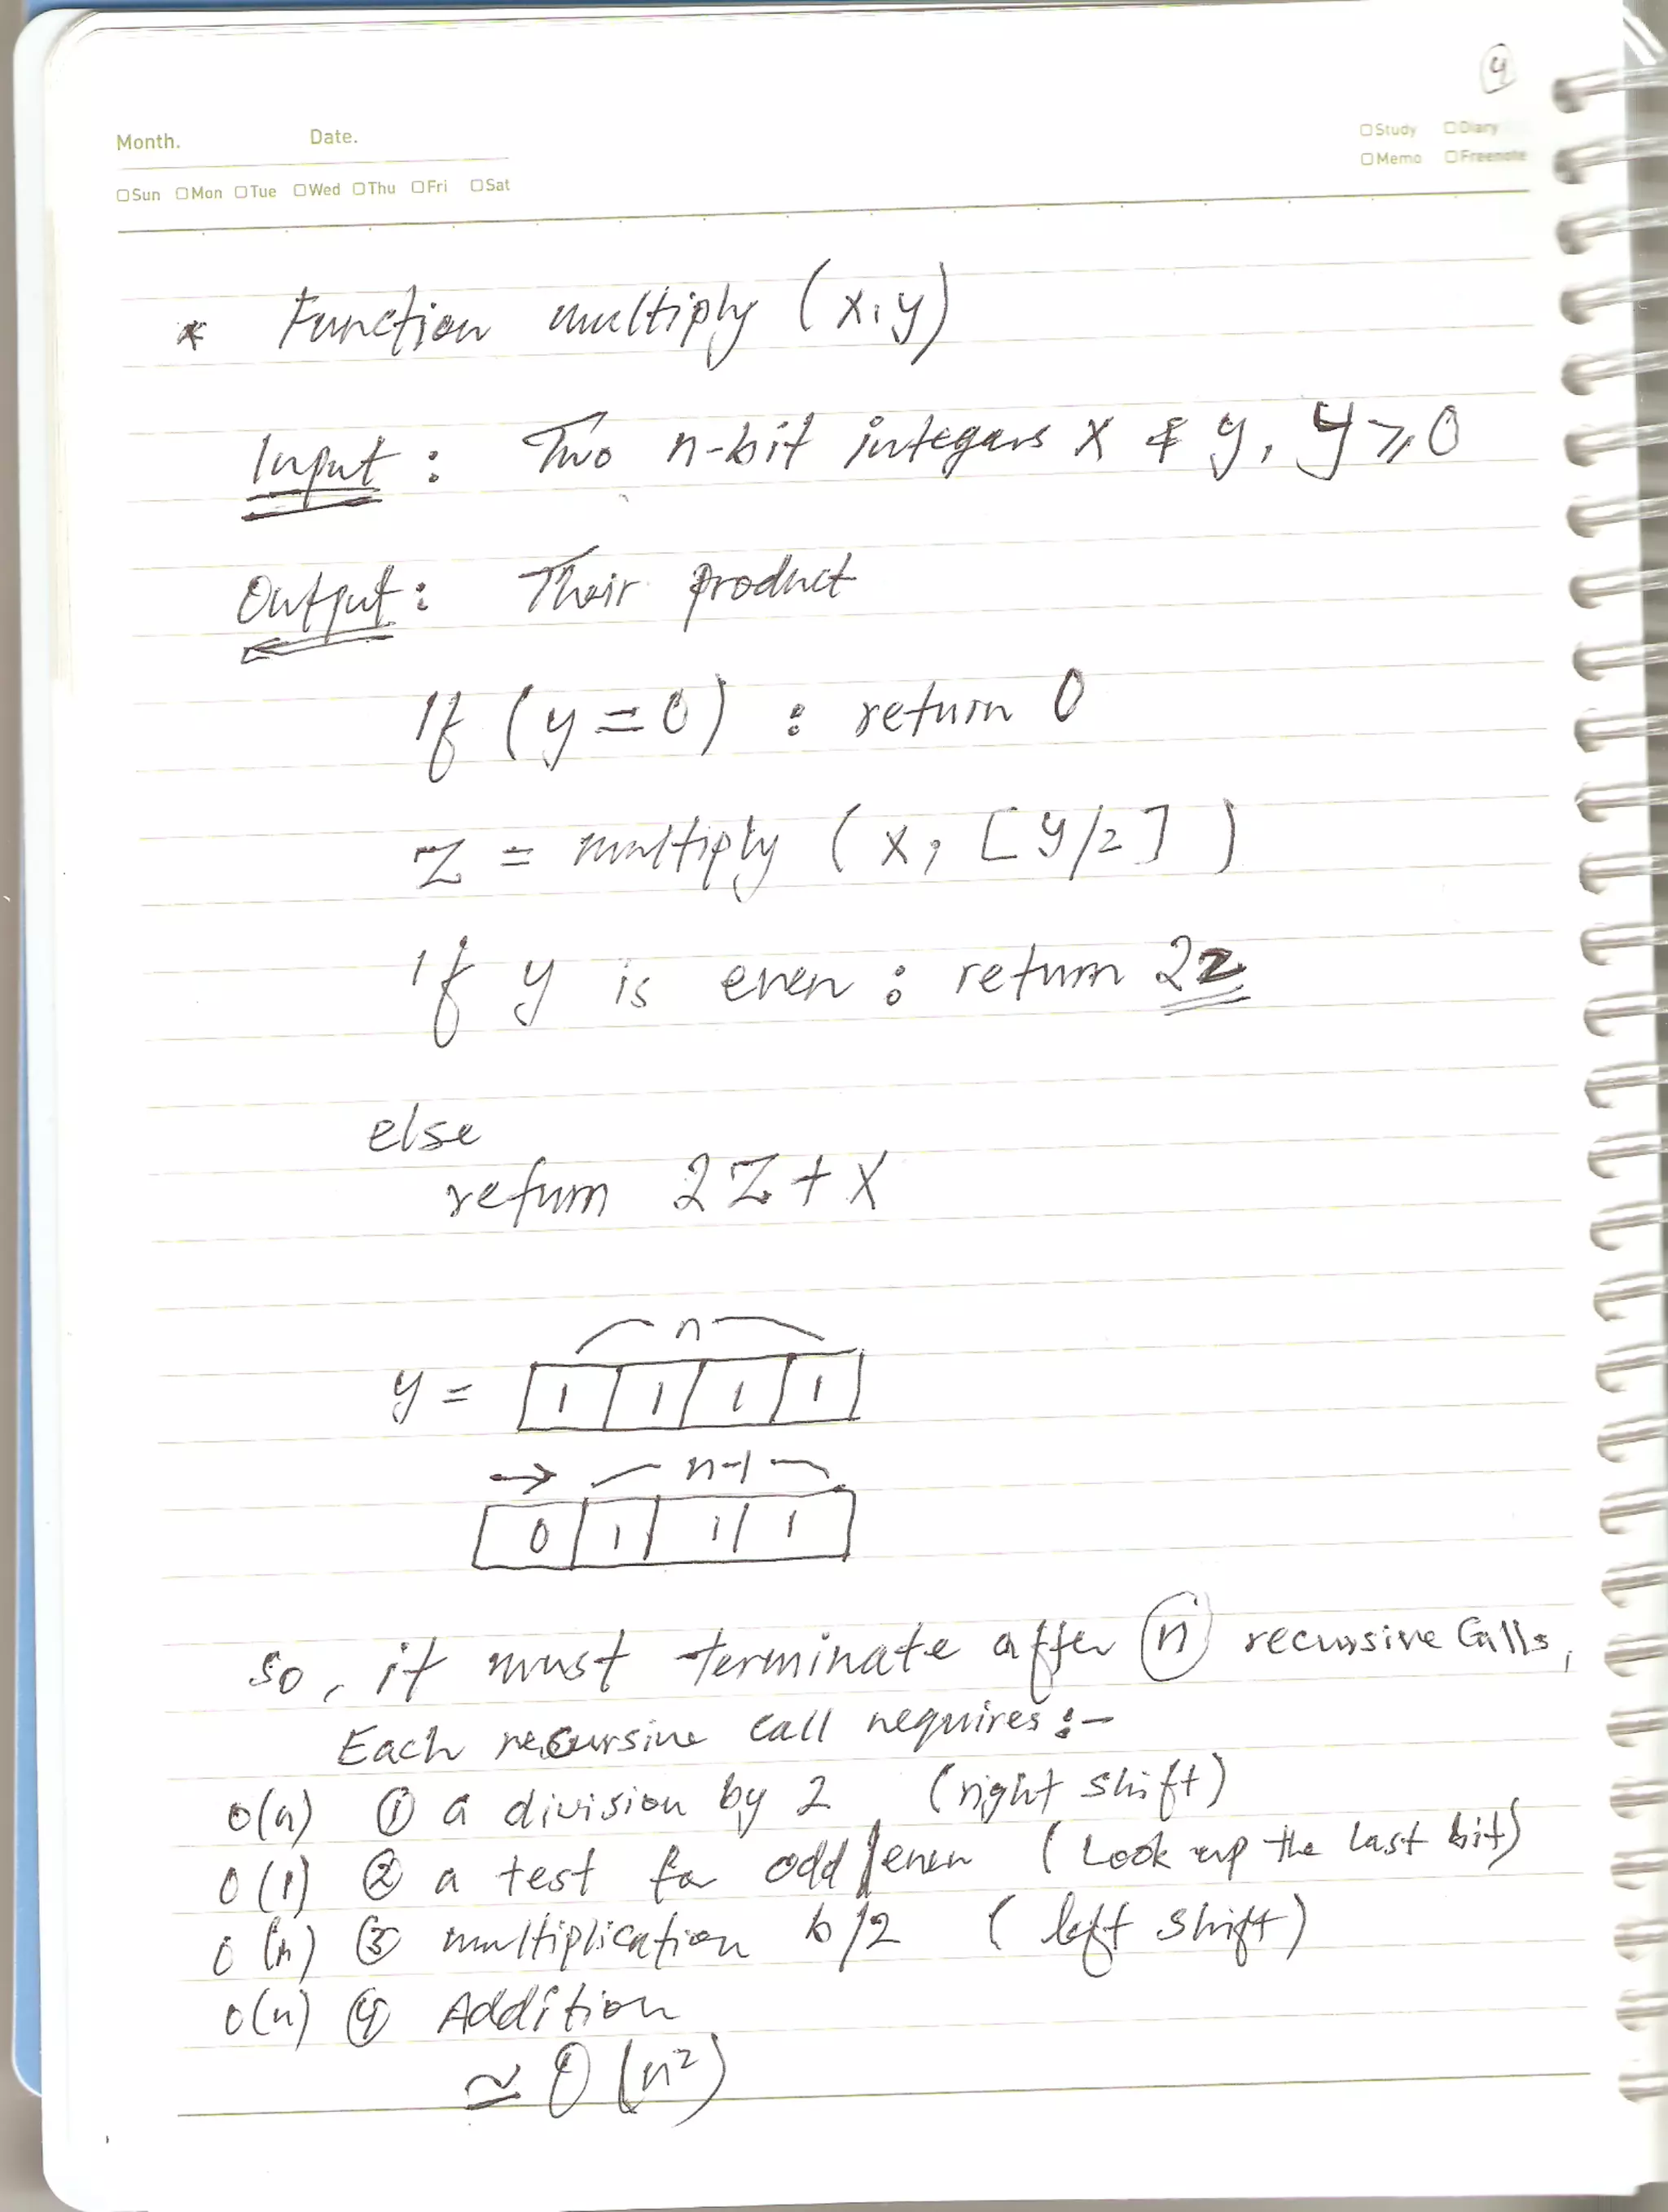 4
Month. Date.
Study Diary
Memo Freenote
Sun Mon Tue Wed Thu Fri Sat
* Function multiply (x, y)
Input : Two n-bit integars x & y, y ≥ 0
Output : Their product
If (y = 0) : return 0
Z = multiply (x, [y/2])
If y is even : return 2z
else
return 2Z + X
n
y = 1 1 1 1
→ n-1
0 1 1 1
so, it must terminate after n recursive Calls,
Each recursive call requires :-
O(n) ① a division by 2 (right shift)
O(1) ② a test for odd/even (Look up the last bit)
O(n) ③ multiplication b/2 (left shift)
O(n) ④ Addition
≃ O(n²)